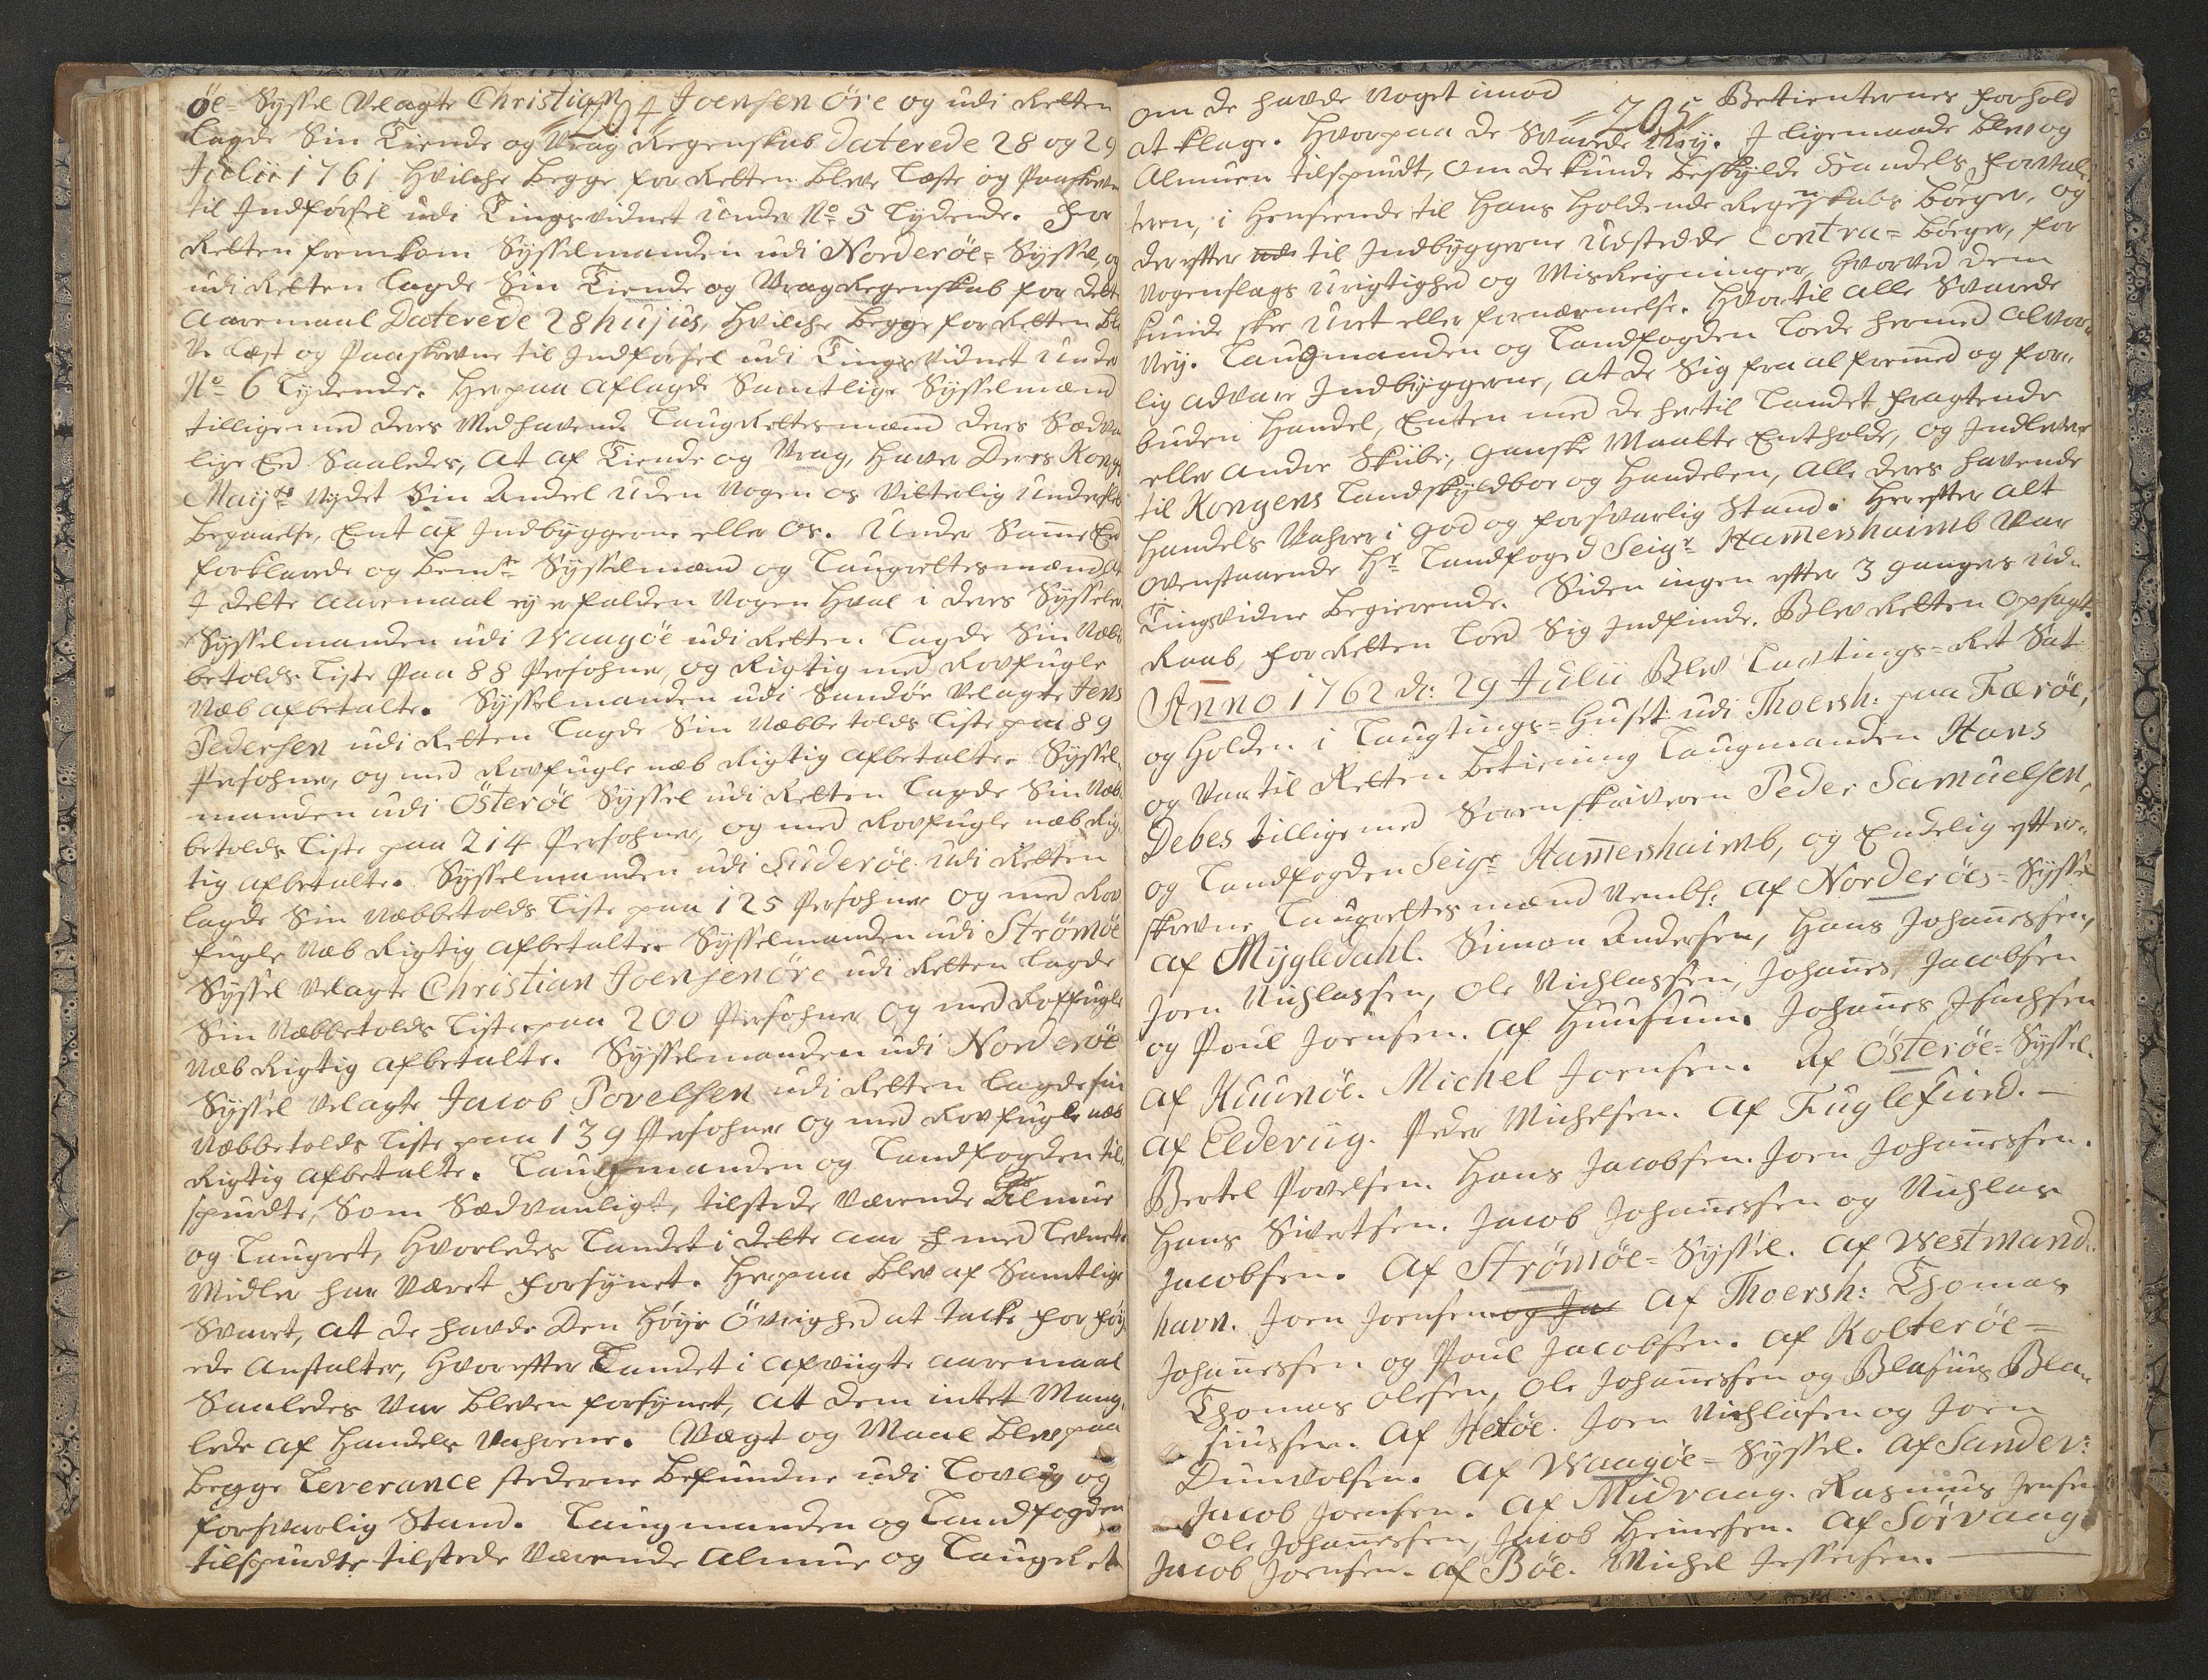 704
öe- Syssel Velagte Christian Joensen Øre og udi Retten
lagde Sin Tiende og Vrag Regenskab daterede 28 og 29
Julii 1761 hvilche begge for Retten bleve læste og Paaskrevne
til Indførsel udi Tingsvidnet under No 5 lydende. For
Retten fremkom Sysselmanden udi Norderöe- Syssel, og
udi Retten lagde Sin Tiende og Vrag Regenskab for dette
Aaremaal Daterede 28 hujus, hvilche begge for Retten ble
ve læst og Paaskrevne til Indførsel udi Tingsvidnet under
No 6 lydende. Herpaa aflagde Samtlige Sysselmænd
tilligemed deres Medhavende Laugrettesmænd deres Sædvan
lige Eed Saaledes, at af Tiende og Vrag, haver Deres Kongl.
Mayts nydet Sin Andeel uden nogen os vitterlig underslæb
begaaelse, Ent af Indbyggerne eller os. Under Samme Eed
forklarede og bemte Sysselmænd og Laugrettesmænd, at
J dette aaremaal ey er falden nogen Hval i deres Sysseler
Sysselmanden udi Waagöe udi Retten lagde Sin Næb-
betolds Liste paa 88 Persohner, og Rigtig med Rovfugle
Næb afbetalte. Sysselmanden udi Sandöe Velagte Jens
Pedersen udi Retten lagde Sin Næbbetolds Liste paa 89
Persohner, og med Rovfugle næb Rigtig afbetalte. Syssel-
manden udi Österöe Syssel udi Retten lagde Sin Næb-
betolds Liste paa 214 Persohner, og med Rovfugle næb Rig-
tig afbetalte. Sysselmanden udi Suderöe udi Retten
lagde Sin Næbbetolds Liste paa 125 Persohner og med Rov
fugle Næb Rigtig afbetalte. Sysselmanden udi Strömöe
Syssel Velagte Christian Joensenöre udi Retten lagde
Sin Næbbetolds Liste paa 200 Persohner og med Roffugle
Næb Rigtig afbetalte. Sysselmanden udi Norderöe
Syssel Velagte Jacob Povelsen udi Retten lagde sin
Næbbetolds Liste paa 139 Persohner og med Rovfugle næb
Rigtig afbetalte. Laugmanden og Landfogden til-
spurdte, Som Sædvanligt, tilstede Værende Almue
og Laugret, hvorledes Landet i dette aar med Levnets
Midler har Været forsynet. Herpaa blev af Samtlige
Svaret, at de havde Den Høye Övrighed at takke for føy-
ede Anstalter, hvorefter Landet i afvigte aaremaal
Saaledes var bleven forsynet, at dem intet Mang-
lede af Handels Vahrene. Vægt og Maal blev paa
begge Leverance stederne befundne udi Lovlig og
forsvarlig Stand. Laugmanden og Landfogden
tilspurdte tilstede Værende Almue og Laugret
705
om de havde noget imod Betienternes forhold
at klage. hvorpaa de Svarede Ney. J ligemaade blev og
Almuen tilspurdt, om de kunde beskylde Handels forval-
teren, i henseende til hans holdende Regenskabs bøger, og
derefter til Indbyggerne udstedde Contra- bøger, for
nogenslags urigtighed og Misreigninger, hvorved dem
kunde skee Uret eller fornærmelse. hvortil alle Svarede
Ney. Laugmanden og Landfogden lode hermed alvor-
lig advare Indbyggerne, at de Sig fra al fremmed og for-
buden Handel, Enten med de hertil Landet fragtende
eller andre Skibe, ganske Maatte Entholde, og Indlevere
til Kongens Landskyldboe og Handelen, alle deres havende
Handels Vahrer i god og forsvarlig Stand. Herefter alt
ovenstaaende Hr Landfoged Seigr Hamershaimb var
Tingsvidne begierende. Siden ingen efter 3 ganges Ud-
Raab, for Retten lod Sig Indfinde. Blev Retten opsagt.
Anno 1762 d: 29 Julii Blev Lavtings- Ret Sat
og holden i Laugtings- huset udi Thorsh: paa Færöe,
og var til Retten betiening Laugmanden Hans
Debes tillige med Sorenskriveren Peder Samuelsen,
og Landfogden Seigr Hamershaimb, og Endelig efter-
skrevne Laugrettesmænd Nembl: af Norderöes- Syssel
af Mygledahl. Simon Andersen, Hans Johannessen,
Joen Nichlassen, Ole Nichlassen, Johannes Jacobsen
og Poul Joensen. af Huusum. Johannes Isachsen
af Kuunöe. Michel Joensen. Af Österöe- Syssel.
af Elderviig. Peder Michelsen. af Fuglefiord. —
Bertel Povelsen. Hans Jacobsen. Joen Johannessen.
Hans Sivertsen. Jacob Johannessen og Nichlas
Jacobsen. Af Strömöe- Syssel. af Westmand-
havn. Joen Joensen og Jac af Thoersh: Thomas
Johannessen og Poul Jacobsen. af Kolteröe-
Thomas Olesen, Ole Johannessen og Blasius Bla-
siussen. af Hestöe. Joen Nichlasen og Joen
Dunvolsen. af Waagöe- Syssel. af Sander:
Jacob Joensen. af Midvaag. Rasmus Jensen
Ole Johannessen, Jacob Heinesen. af Sørvaag
Jacob Joensen. af Böe. Michel Jesersen.